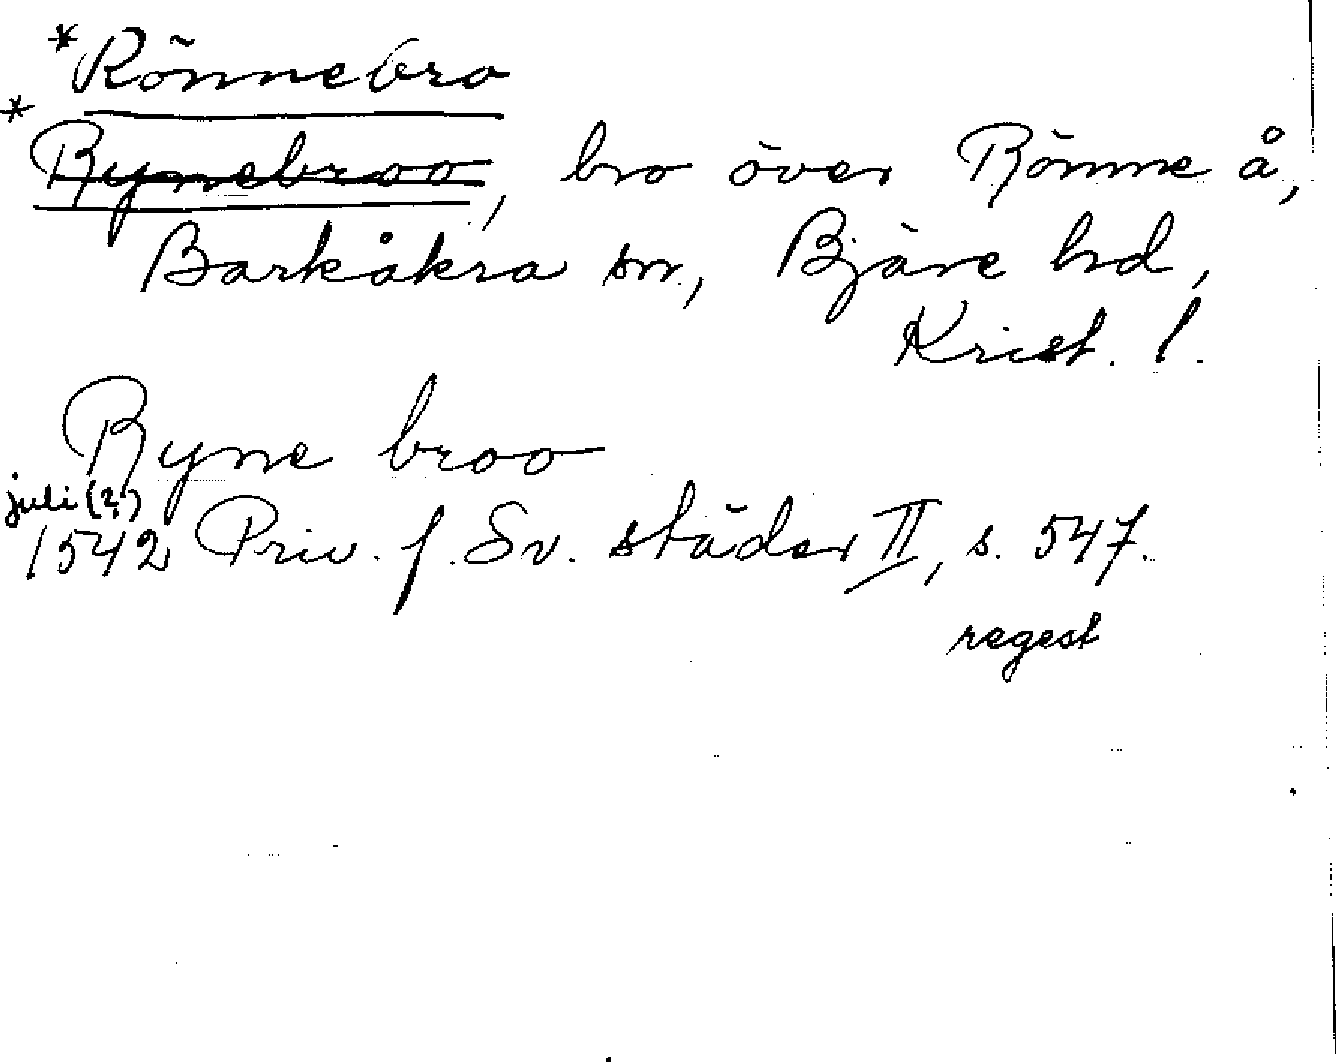 *Rönnebro
*Rynebroo, bro över Rönne å,
Barkåkra sn., Bjäre hd,
Krist. l.
Ryne broo
juli (?)
1542 Priv. f. Sv. städer II, s. 547.
regest